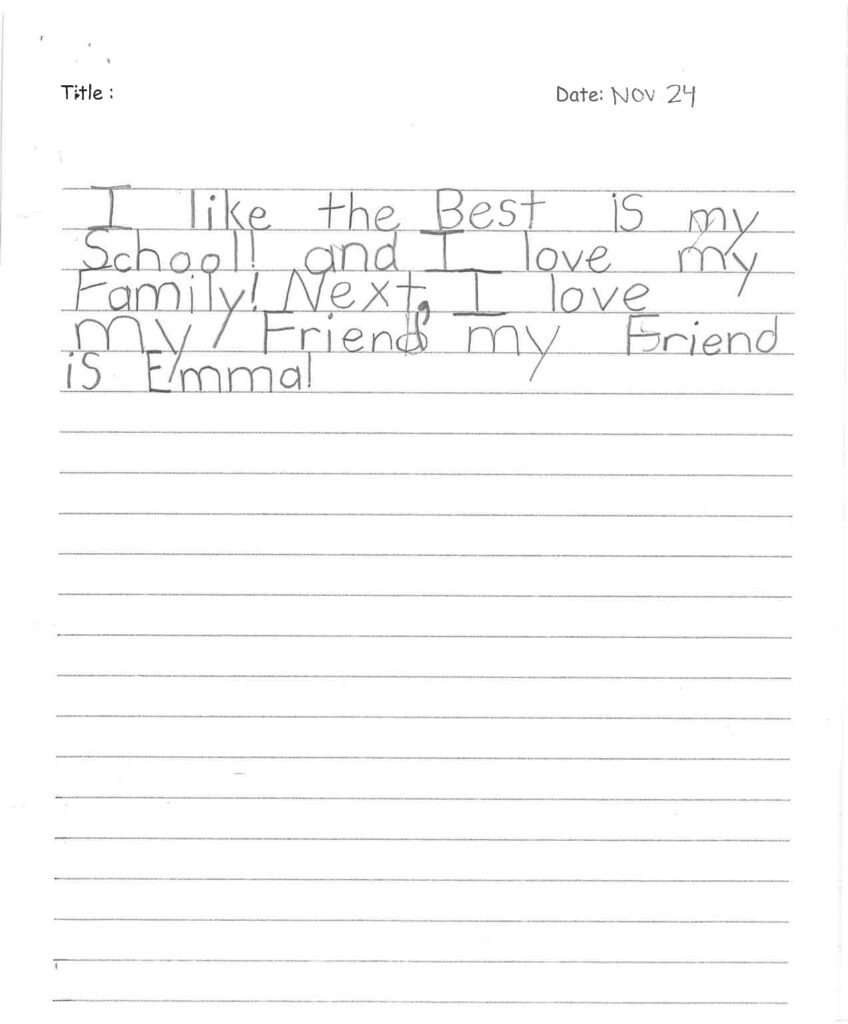 Title :
Date: Nov 24
I like the Best is my
School! and I love my
Family! Next, I love
my Friend my Friend
is Emma!